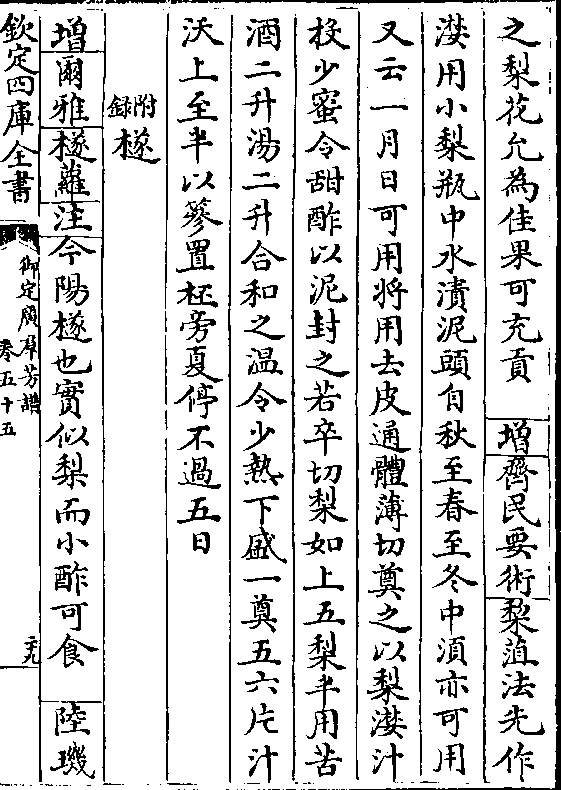 之梨花允為佳果可充貢　增齊民要術梨菹法先作
漤用小梨瓶中水漬泥頭自秋至春至冬中須亦可用
又云一月日可用將用去皮通體薄切奠之以梨漤汁
投少蜜令甜酢以泥封之若卒切梨如上五梨半用苦
酒二升湯二升合和之温令少熟下盛一奠五六片汁
沃上至半以篸置柸旁夏停不過五日
附録
檖
增爾雅檖蘿注今陽檖也實似梨而小酢可食　陸璣
欽定四庫全書
御定廣羣芳譜
卷五十五